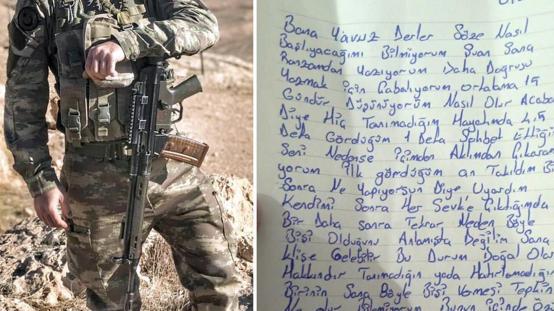 Bana Yavuz Derler Söze Nasıl
Başlıyacağımı Bilmiyorum Şuan Sana
Ranzamdan Yazıyorum Daha Doğrusu
Yazmak için Çabalıyorum ortalama 15
Gündür Düşünüyorum Nasıl Olur Acaba
Diye Hiç Tanımadığım Hayatımda 4,5
Defa Gördüğüm 1 Defa Sohbet Ettiğim
Seni Nedense içimden Aklımdan Çıkaram
yorum ilk gördüğüm an Takıldım
Sonra Ne Yapıyorsun Diye Uyardım
Kendimi Sonra Her Sevk'e Çıktığımda
Bir Daha sonra Tekrar Neden Böyle
Bişi Olduğunu Anlamışta Değilim Sana
Klişe Gelebilir Bu Durum Doğal Olar
Hakkındır Tanımadığın yada Hatırlamadığın
Birinin Sana Böyle Bişi Vermesi Tepkin
Ne olur Bilmiyorum Bunun içinde